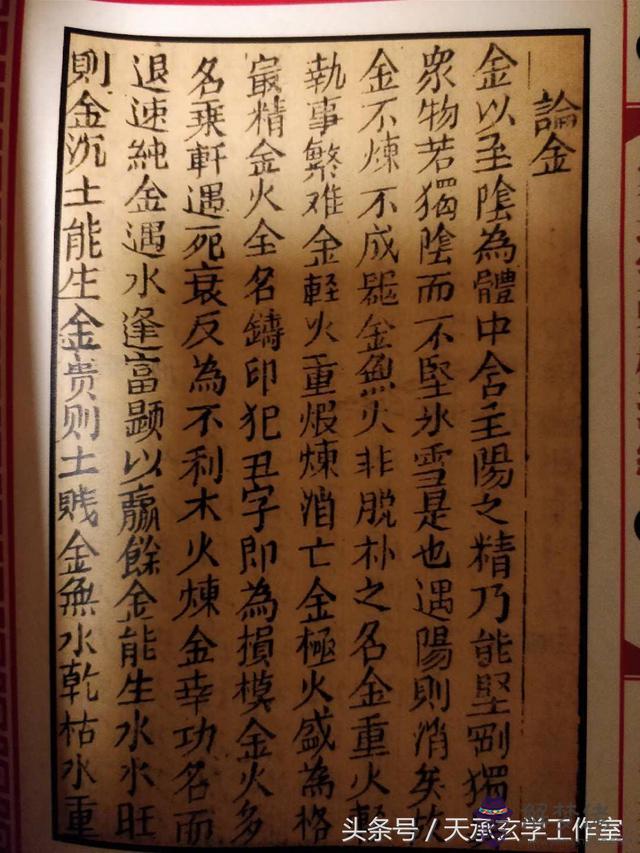 論金
金以至陰為體中含至陽之精乃能堅剛獨
衆物若獨陰而不堅氷雪是也遇陽則消矣故
金不煉不成噐金無火非脱朴之名金重火輕
執事繁难金輕火重煅煉消亡金極火盛為格
最精金火全名鑄印犯丑字即為損模金火多
名乘軒遇死衰反為不利木火煉金幸功名而
退速純金遇水逢富顕以贏餘金能生水水旺
則金沉土能生金贵则土贱金無水乾枯水重
头条号／天承玄学工作室